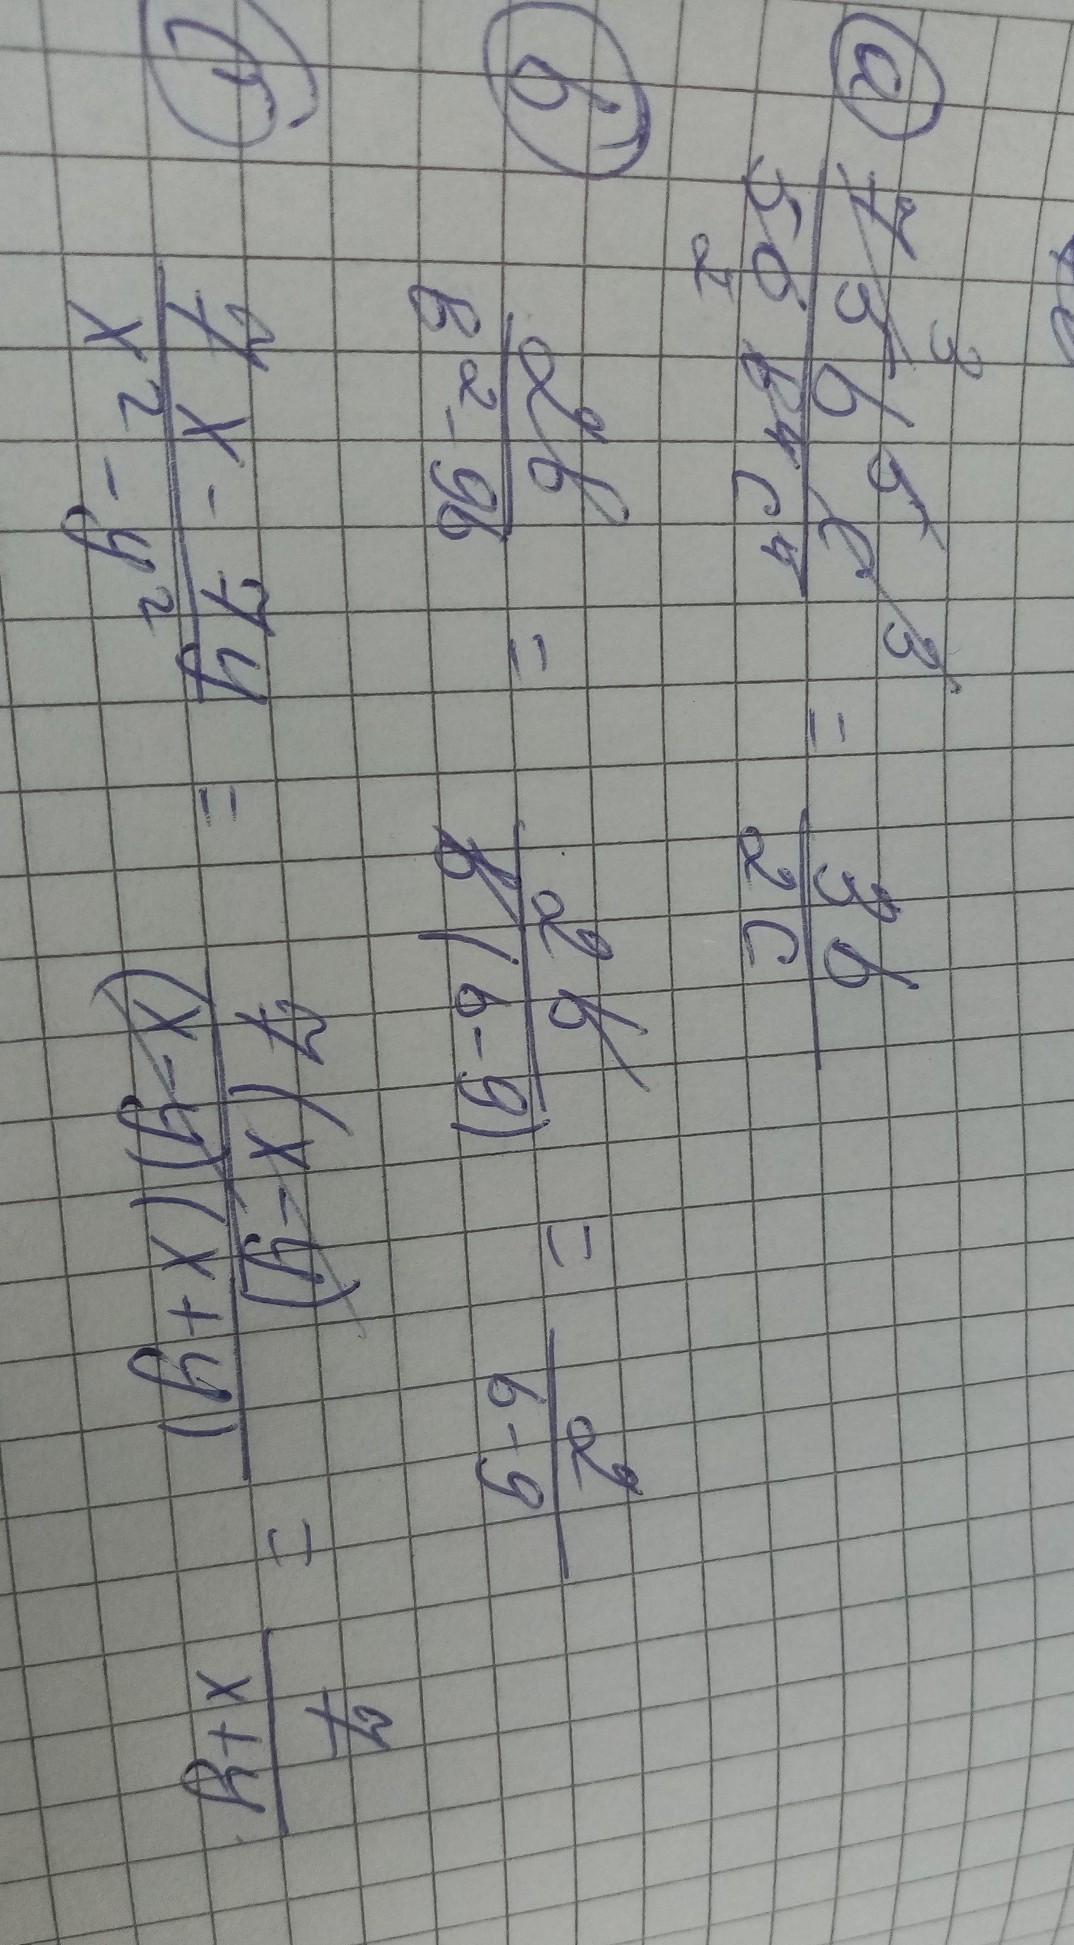 а) 75b⁵c³ / 50b⁴c⁴ = 3b / 2c
3
2
б) 2b / b² - 9b = 2b / b(b - 9) = 2 / b - 9
г) 7x - 7y / x² - y² = 7(x - y) / (x - y)(x + y) = 7 / x + y